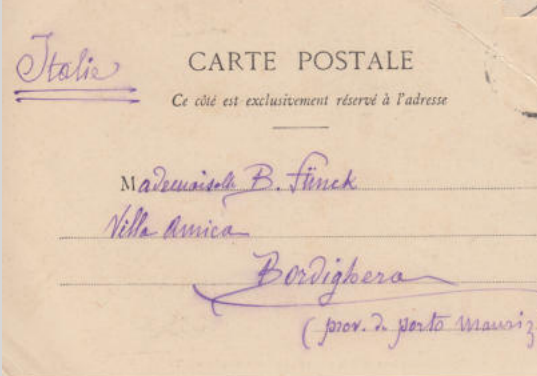 Italie
CARTE POSTALE
Ce côté est exclusivement réservé à l'adresse
Mademoiselle B. Fünck
Villa Amica
Bordighera
(prov. di porto Mauriz